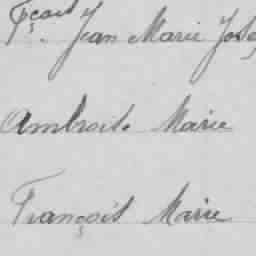 Fçois Jean Marie Jose
Ambroise Marie
François Marie